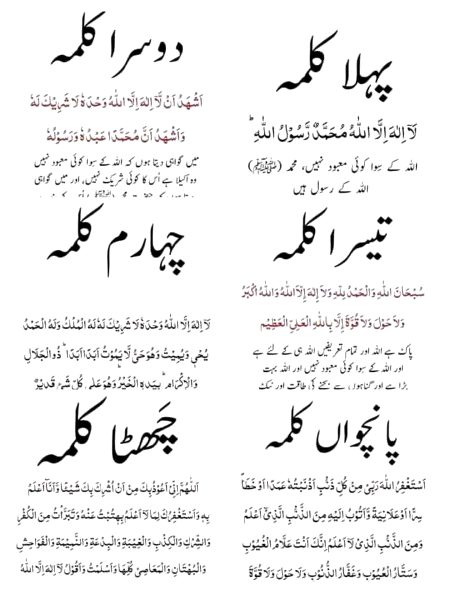 پہلا کلمہ
لَآ اِلٰهَ اِلَّا اللّٰهُ مُحَمَّدٌ رَّسُوْلُ اللّٰهِ ؕ
اللہ کے سِوا کوئی معبود نہیں، محمد (ﷺ)
اللہ کے رسول ہیں
دوسرا کلمہ
اَشْهَدُ اَنْ لَّآ اِلٰهَ اِلَّا اللّٰهُ وَحْدَهٗ لَا شَرِيْكَ لَهٗ
وَاَشْهَدُ اَنَّ مُحَمَّدًا عَبْدُهٗ وَرَسُوْلُهٗ
میں گواہی دیتا ہوں کہ اللہ کے سِوا کوئی معبود نہیں
وہ اکیلا ہے اُس کا کوئی شریک نہیں، اور میں گواہی
تیسرا کلمہ
سُبْحَانَ اللّٰهِ وَالْحَمْدُ لِلّٰهِ وَلَآ اِلٰهَ اِلَّا اللّٰهُ وَاللّٰهُ اَكْبَرُ
وَلَا حَوْلَ وَلَا قُوَّةَ اِلَّا بِاللّٰهِ الْعَلِيِّ الْعَظِيْمِ
پاک ہے اللہ اور تمام تعریفیں اللہ ہی کے لئے ہے
اور اللہ کے سوا کوئی معبود نہیں اور اللہ بہت
بڑا ہے اور گناہوں سے بچنے کی طاقت اور نیک
چہارم کلمہ
لَآ اِلٰهَ اِلَّا اللّٰهُ وَحْدَهٗ لَا شَرِيْكَ لَهٗ لَهُ الْمُلْكُ وَلَهُ الْحَمْدُ
يُحْيٖ وَيُمِيْتُ وَهُوَ حَيٌّ لَّا يَمُوْتُ اَبَدًا اَبَدًا ؕ ذُو الْجَلَالِ
وَالْاِكْرَامِ ؕ بِيَدِهِ الْخَيْرُ ؕ وَهُوَ عَلٰى كُلِّ شَیْءٍ قَدِيْرٌ ؕ
پانچواں کلمہ
اَسْتَغْفِرُ اللّٰهَ رَبِّيْ مِنْ كُلِّ ذَنْۢبٍ اَذْنَبْتُهٗ عَمَدًا اَوْ خَطَأً
سِرًّا اَوْ عَلَانِيَةً وَّاَتُوْبُ اِلَيْهِ مِنَ الذَّنْۢبِ الَّذِيْٓ اَعْلَمُ
وَمِنَ الذَّنْۢبِ الَّذِيْ لَآ اَعْلَمُ اِنَّكَ اَنْتَ عَلَّامُ الْغُيُوْبِ
وَسَتَّارُ الْعُيُوْبِ وَغَفَّارُ الذُّنُوْبِ وَلَا حَوْلَ وَلَا قُوَّةَ
چَھٹا کلمہ
اَللّٰهُمَّ اِنِّيْٓ اَعُوْذُ بِكَ مِنْ اَنْ اُشْرِكَ بِكَ شَيْئًا وَّاَنَآ اَعْلَمُ
بِهٖ وَاَسْتَغْفِرُكَ لِمَا لَآ اَعْلَمُ بِهٖ تُبْتُ عَنْهُ وَتَبَرَّأْتُ مِنَ الْكُفْرِ
وَالشِّرْكِ وَالْكِذْبِ وَالْغِيْبَةِ وَالْبِدْعَةِ وَالنَّمِيْمَةِ وَالْفَوَاحِشِ
وَالْبُهْتَانِ وَالْمَعَاصِيْ كُلِّهَا وَاَسْلَمْتُ وَاَقُوْلُ لَآ اِلٰهَ اِلَّا اللّٰهُ